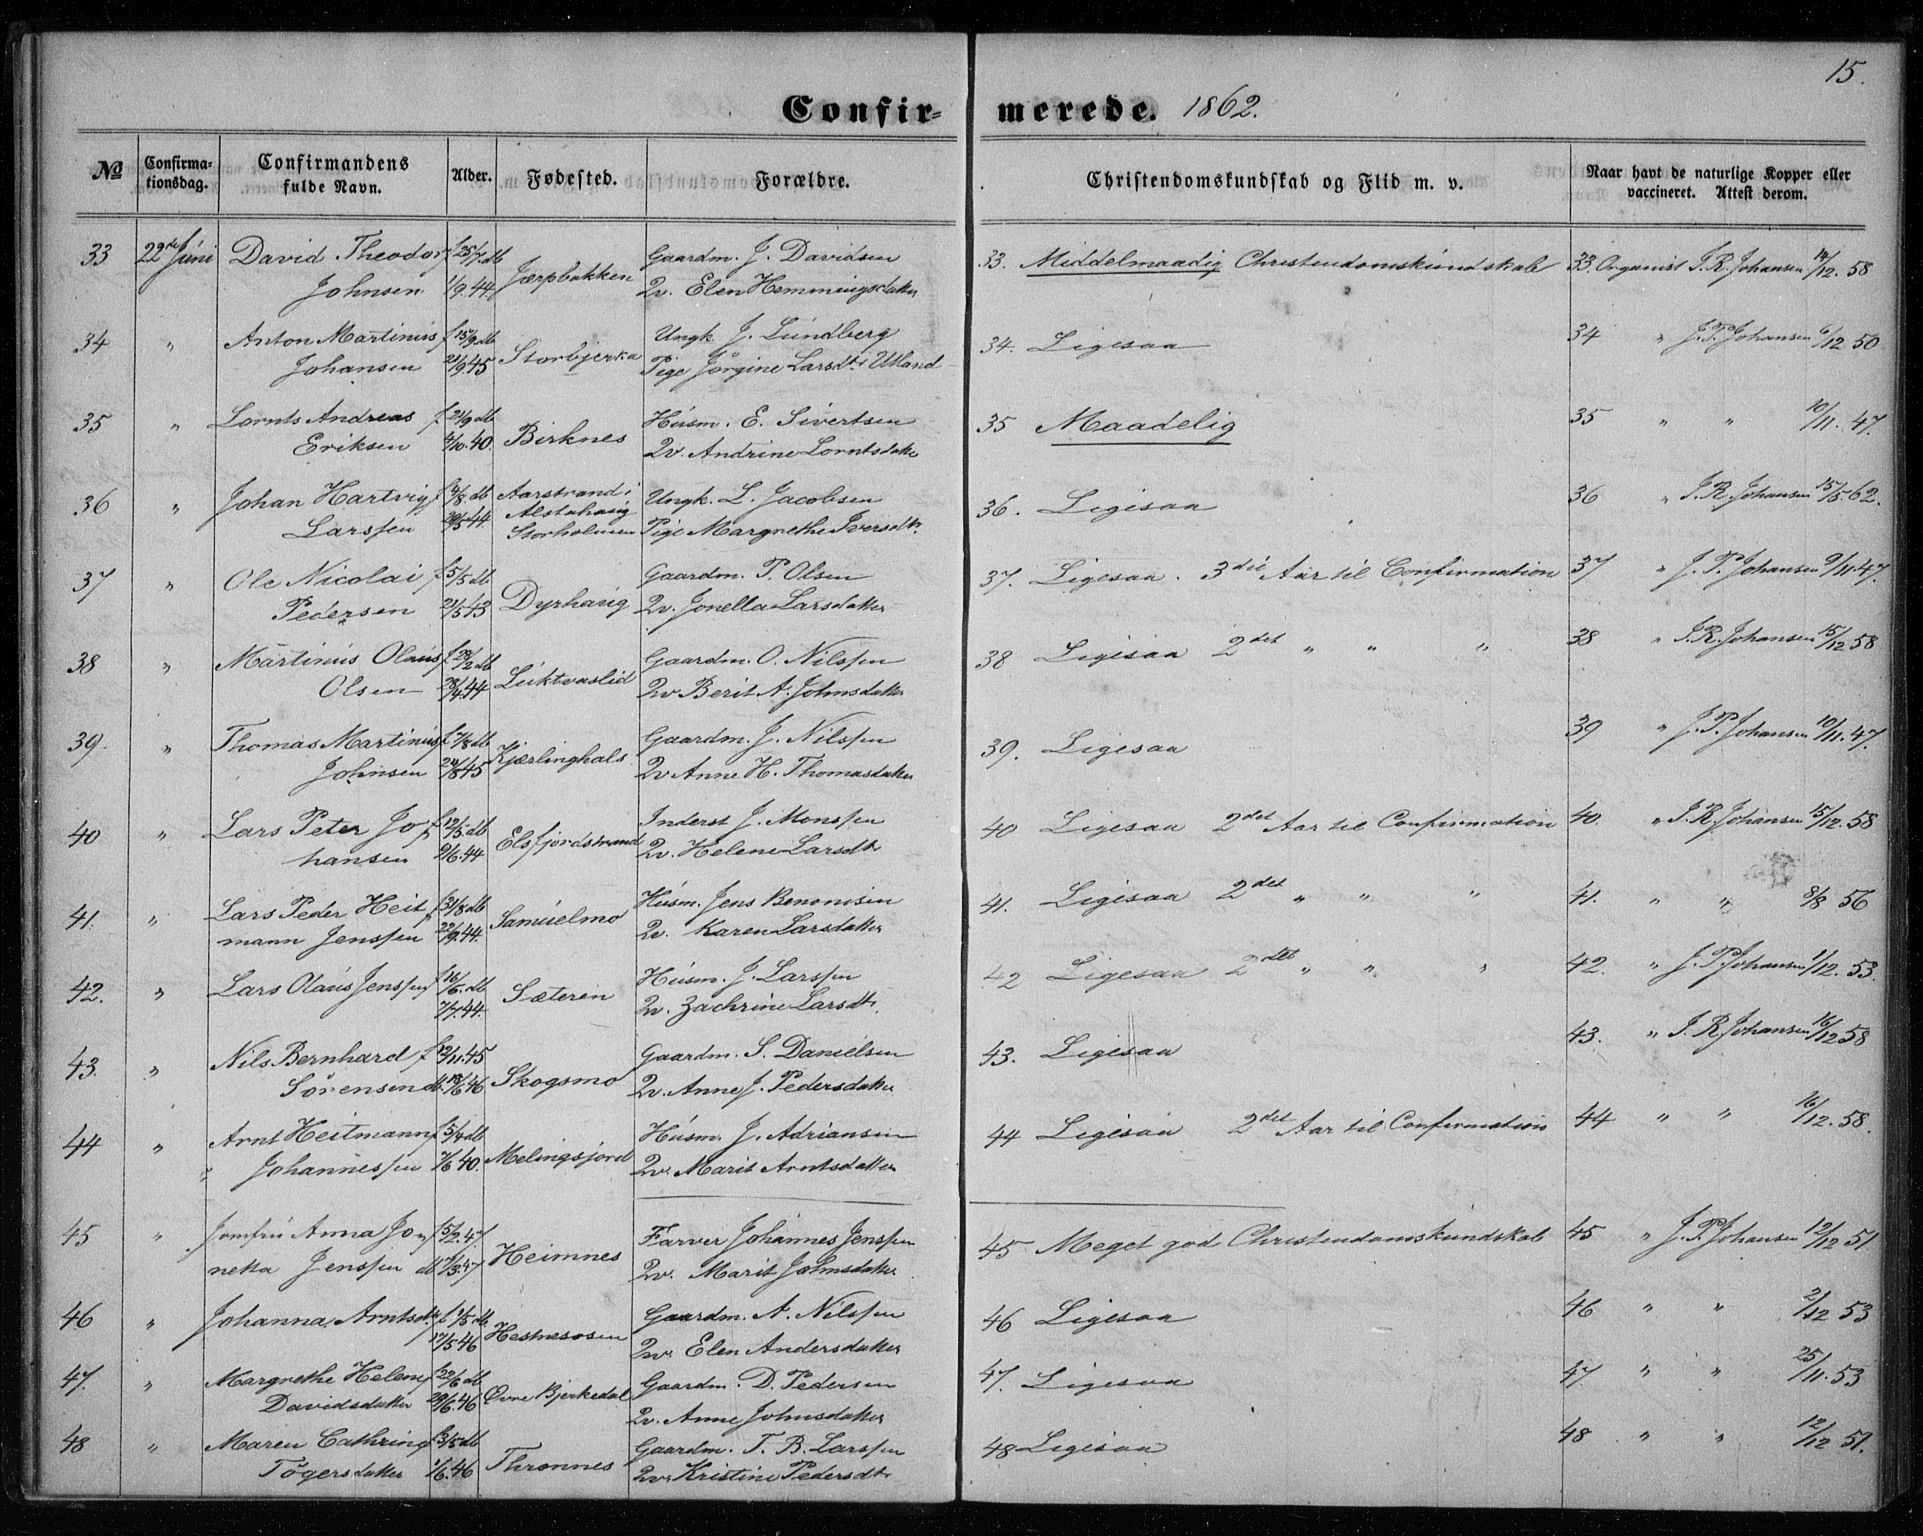 15.
Confir- merede. 1862.
No Confirma- Confirmandens Alder. Fødested. Forældre. Christendomskundskab og Flid m. v. Naar havt de naturlige Kopper eller
tionsdag. fulde Navn. vaccineret. Attest derom.
33 22de Juni David Theodor f 25/7. db Jærpbakken Gaardm. J. Davidsen 33. Middelmaadig Christendomskundskab 33. Organist I. R. Johansen 14/12. 58
Johnsen 1/9. 44. Qv. Elen Hemmingsdatter
34 " Anton Martinus f 15/9. db Storbjerka Ungk. J. Lundberg 34. Ligesaa 34 " J. P. Johansen 6/12. 50
Johansen 21/9. 45 Pige Jörgine Larsdt. Utland
35 " Lornts Andreas f 21/9 db Birknes Husm. E. Sivertsen 35 Maadelig 35 " " 10/11. 47.
Eriksen 4/10. 40. Qv. Andrine Lorntsdatter
36 " Johan Hartvig f 4/3. db Aarstrand i Ungk. L. Jacobsen 36. Ligesaa 36 " I. R. Johansen 15/5 62.
Alstahaug
Larssen 20/5 44. Storholmen Pige Margrethe Iversdt.
37 " Ole Nicolai f 5/5 db Dyrhaug Gaardm. P. Olsen 37. Ligesaa. 3die Aar til Confirmation 37 " J. P. Johansen 9/11. 47.
Pedersen 21/5 43 Qv. Jonella Larsdatter
38 " Martinus Olaus f 23/2 db Luktvaslid Gaardm. O. Nilssen 38 Ligesaa 2det " " " 38 " I. R. Johansen 15/12 58
Olsen 28/4. 44 Qv Berit A. Johnsdatter
39. " Thomas Martinus f 7/8 db Kjærlinghals Gaardm. J. Nilssen 39. Ligesaa 39 " J. P. Johansen 10/11. 47.
Johnsen 24/8 45 Qv Anne H. Thomasdatter
40 " Lars Peter Jo- f 12/5. db Elsfjordstrand Inderst J. Monssen 40 Ligesaa 2det Aar til Confirmation 40. " I. R. Johansen 15/12. 58
hansen 9/6. 44 Qv. Helene Larsdt.
41. " Lars Peder Heit- f 31/8 db Samuelmo Husm. Jens Benonisen 41. Ligesaa 2det " " " 41. " " 8/8 56
mann Jenssen 22/9. 44. Qv. Karen Larsdatter
42. " Lars Olaus Jenssen f 16/6. db Sæteren Husm. J. Larssen 42 Ligesaa 2det " " " 42. " J. P. Johansen 1/12. 53
7/7. 44. Qv. Zachrine Larsdt.
43. " Nils Bernhard f 12/11. 45 Skogsmo Gaardm. S. Danielsen 43. Ligesaa 43. " I. R. Johansen 16/12 58
Sörensen db. 18/6 46 Qv. Anne J. Pedersdatter
44 " Arnt Heitmann f 5/4 db Melingsjord Husm. J. Adriansen 44 Ligesaa 2det Aar til Confirmation 44 " " 16/12. 58.
Johannessen 7/6 40. Qv. Marit Arntsdatter
45 " Jomfru Anna Jo- f 5/2. 47 Heimnes Farver Johannes Jenssen 45 Meget god Christendomskundskab 45 " J. P. Johansen 12/12 51
netta Jenssen db /3. 47 Qv. Marit Johnsdatter
46 " Johanna Arntsdt. f 1/5 db. Hestnesosen Gaardm. A. Nilssen 46 Ligesaa 46 " " 2/12 53
17/5 46 Qv. Elen Andersdatter
47. " Margrethe Helene f 22/6 db Övre Bjerkedal Gaardm. D. Pedersen 47. Ligesaa 47 " " 25/11. 53
Davidsdatter 29/6. 46 Qv. Anne Johnsdatter
48 " Maren Cathrine f 3/5 db Thronnes Gaardm. T. B. Larssen 48 Ligesaa 48 " " 12/12 51.
Tögersdatter 1/6. 46 Qv. Kristine Pedersdt.